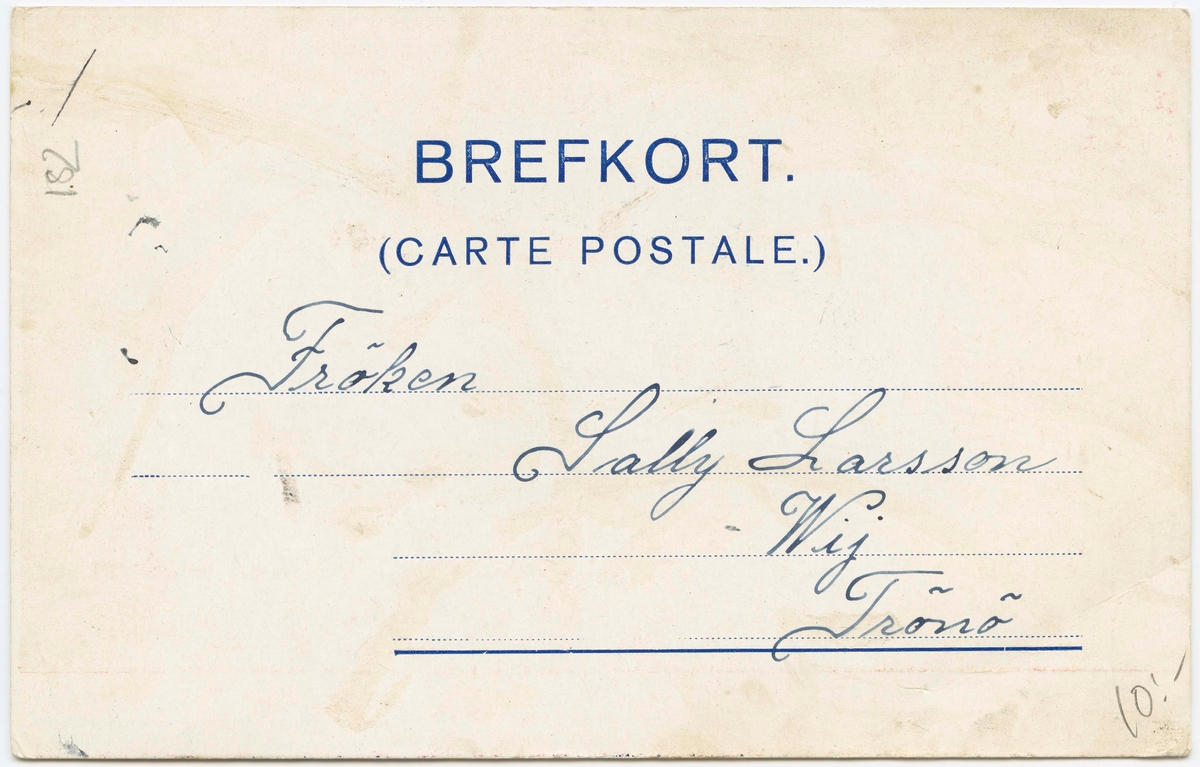 182
BREFKORT.
(CARTE POSTALE.)
Fröken
Sally Larsson
Wij
Trönö
10:-